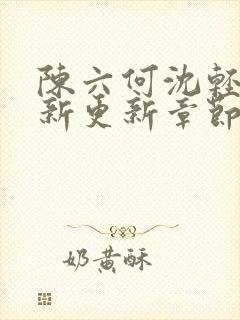 陳六何沈輕
新更新章節
奶黃酥